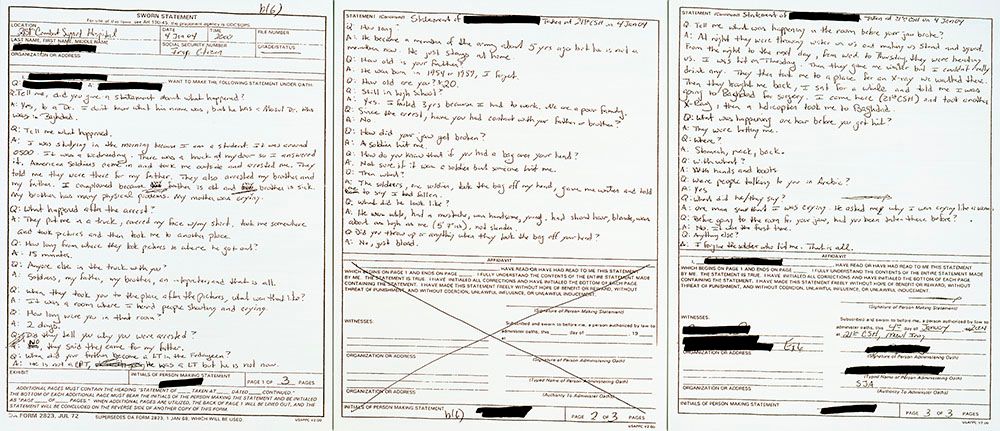 SWORN STATEMENT
For use of this form, see AR 190-45; the proponent agency is ODCSOPS
b(6)
LOCATION
21st Combat Support Hospital
DATE
4 Jan 04
TIME
2000
FILE NUMBER
LAST NAME, FIRST NAME, MIDDLE NAME
SOCIAL SECURITY NUMBER
Iraqi Citizen
GRADE/STATUS
ORGANIZATION OR ADDRESS
WANT TO MAKE THE FOLLOWING STATEMENT UNDER OATH:
Q: Tell me, did you give a statement about what happened?
A: Yes, to a Dr. I don't know what his name was, but he was a Dr. this
was in Baghdad.
Q: Tell me what happened.
A: I was studying in the morning because I am a student. It was around
0500 It was a wednesday. There was a knock at my door so I answered
it. American soldiers came in and took me outside and arrested me. They
told me they were there for my father. They also arrested my brother and
my father. I complained because father is old and brother is sick.
My brother has many physical problems. My mother was crying.
Q: What happened after the arrest?
A: They put me in a truck, covered my face w/my shirt, took me somewhere
and took pictures and then took me to another place.
Q: How long from where they took pictures to where he got out?
A: 15 minutes.
Q: Anyone else in the truck with you?
A: Soldiers, my father, my brother, an interpreter, and that is all.
Q: When they took you to the place after the pictures, what was that like?
A: It was a room where I heard people shouting and crying.
Q: How long were you in that room?
A: 2 days.
Q: Did they tell you why you were arrested?
A: No, they said they came for my father.
Q: When did your father become a LT in the Fedayeen?
A: He is not a LT, he was a LT but he is not now.
EXHIBIT
INITIALS OF PERSON MAKING STATEMENT
PAGE 1 OF 3 PAGES
ADDITIONAL PAGES MUST CONTAIN THE HEADING "STATEMENT OF ___ TAKEN AT ___ DATED ___ CONTINUED."
THE BOTTOM OF EACH ADDITIONAL PAGE MUST BEAR THE INITIALS OF THE PERSON MAKING THE STATEMENT AND BE INITIALED
AS "PAGE ___ OF ___ PAGES." WHEN ADDITIONAL PAGES ARE UTILIZED, THE BACK OF PAGE 1 WILL BE LINED OUT, AND THE
STATEMENT WILL BE CONCLUDED ON THE REVERSE SIDE OF ANOTHER COPY OF THIS FORM.
DA FORM 2823, JUL 72
SUPERSEDES DA FORM 2823, 1 JAN 68, WHICH WILL BE USED.
USAPPC V2.00
STATEMENT (Continued) Statement of Taken at 21st CSH on 4 Jan 04
Q: How long
A: He became a member of the army about 5 yrs ago but he is not a
member now. He just stays at home.
Q: How old is your father?
A: He was born in 1954 or 1957, I forget.
Q: How old are you? A: 20.
Q: Still in high school?
A: Yes. I failed 3 yrs because I had to work. We are a poor family.
Q: Since the arrest, have you had contact with your father or brother?
A: No
Q: How did your jaw get broken?
A: A soldier hit me.
Q: How do you know that if you had a bag over your head?
A: Not sure if it was a soldier but someone hit me.
Q: Then what?
A: The soldiers, one soldier, took the bag off my head, gave me water and told
me to say I had fallen.
Q: What did he look like?
A: He was white, had a mustache, was handsome, young, had short hair, blonde, was
about as high as me (5'7" ish), not slender.
Q: Did you throw up or anything when they took the bag off your head?
A: No, just blood.
AFFIDAVIT
HAVE READ OR HAVE HAD READ TO ME THIS STATEMENT
WHICH BEGINS ON PAGE 1 AND ENDS ON PAGE ___. I FULLY UNDERSTAND THE CONTENTS OF THE ENTIRE STATEMENT MADE
BY ME. THE STATEMENT IS TRUE. I HAVE INITIALED ALL CORRECTIONS AND HAVE INITIALED THE BOTTOM OF EACH PAGE
CONTAINING THE STATEMENT. I HAVE MADE THIS STATEMENT FREELY WITHOUT HOPE OF BENEFIT OR REWARD, WITHOUT
THREAT OF PUNISHMENT, AND WITHOUT COERCION, UNLAWFUL INFLUENCE, OR UNLAWFUL INDUCEMENT.
(Signature of Person Making Statement)
WITNESSES:
Subscribed and sworn to before me, a person authorized by law to
administer oaths, this ___ day of ___ 19
at
ORGANIZATION OR ADDRESS
(Signature of Person Administering Oath)
(Typed Name of Person Administering Oath)
ORGANIZATION OR ADDRESS
(Authority To Administer Oaths)
INITIALS OF PERSON MAKING STATEMENT
b(6)
PAGE 2 OF 3 PAGES
USAPPC V2.00
STATEMENT (Continued) Statement of Taken at 21st CSH on 4 Jan 04
Q: Tell me what was happening in the room before your jaw broke?
A: At night they were throwing water on us and making us stand and squat.
From the night to the next day, from wed to Thursday they were beating
us. I was hit on Thursday. Then they gave me water but I couldn't really
drink any. They then took me to a place for an x-ray we walked there.
Then they brought me back, I sat for a while and told me I was
going to Baghdad for surgery. I came here (21st CSH) and took another
X-Ray, then a helicopter took me to Baghdad.
Q: What was happening one hour before you got hit?
A: They were hitting me.
Q: Where?
A: Stomach, neck, back.
Q: With what?
A: With hands and boots
Q: Were people talking to you in Arabic?
A: Yes
Q: What did he/they say?
A: One man said that I was crying. He asked me why I was crying like a woman.
Q: Before going to the room for your jaw, had you been in there before?
A: No, it was the first time.
Q: Anything else?
A: I forgive the soldier who hit me. That is all.
AFFIDAVIT
HAVE READ OR HAVE HAD READ TO ME THIS STATEMENT
WHICH BEGINS ON PAGE 1 AND ENDS ON PAGE 3. I FULLY UNDERSTAND THE CONTENTS OF THE ENTIRE STATEMENT MADE
BY ME. THE STATEMENT IS TRUE. I HAVE INITIALED ALL CORRECTIONS AND HAVE INITIALED THE BOTTOM OF EACH PAGE
CONTAINING THE STATEMENT. I HAVE MADE THIS STATEMENT FREELY WITHOUT HOPE OF BENEFIT OR REWARD, WITHOUT
THREAT OF PUNISHMENT, AND WITHOUT COERCION, UNLAWFUL INFLUENCE, OR UNLAWFUL INDUCEMENT.
(Signature of Person Making Statement)
WITNESSES:
Subscribed and sworn to before me, a person authorized by law to
administer oaths, this 4th day of January 2004
at 21st CSH, Iraq
ORGANIZATION OR ADDRESS
(Signature of Person Administering Oath)
(Typed Name of Person Administering Oath)
SJA
ORGANIZATION OR ADDRESS
(Authority To Administer Oaths)
INITIALS OF PERSON MAKING STATEMENT
PAGE 3 OF 3 PAGES
USAPPC V2.00